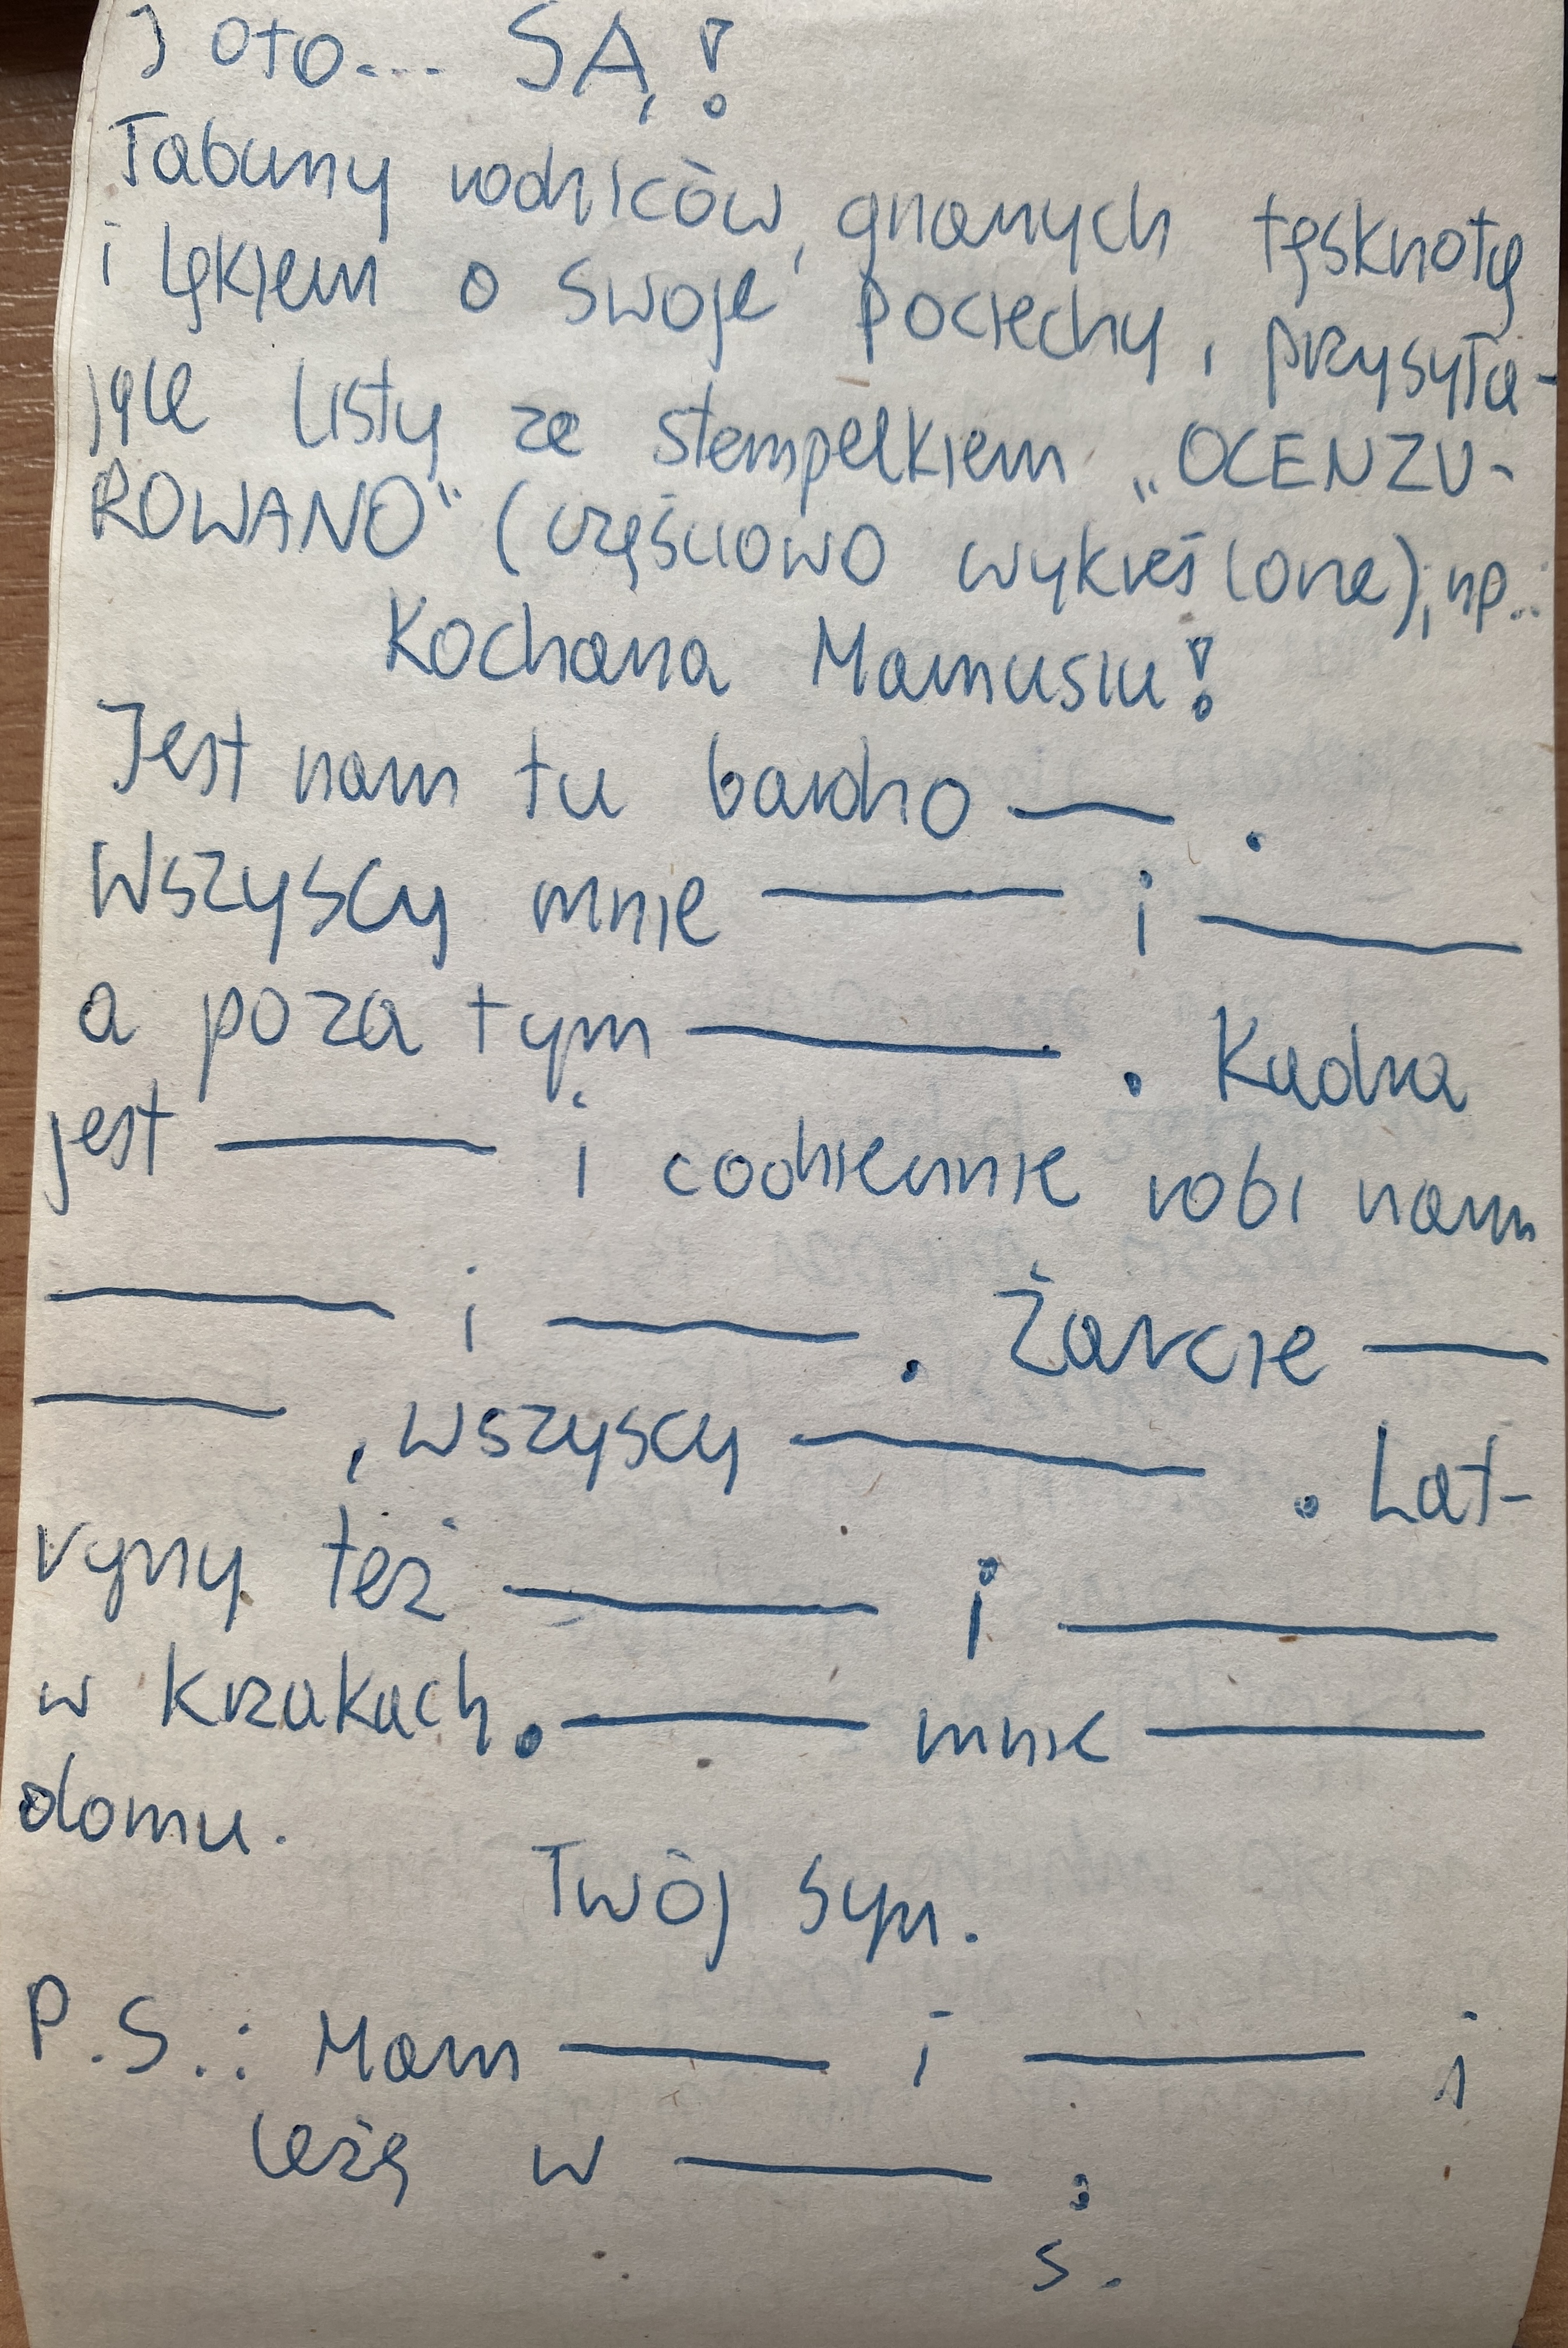 I oto... SĄ!
Tabuny rodziców, gnanych tęsknotą
i lękiem o swoje pociechy, przysyła-
jące listy ze stempelkiem „OCENZU-
ROWANO" (częściowo wykreślone); np.:
Kochana Mamusiu!
Jest nam tu bardzo ——— .
Wszyscy mnie ——— i ———
a poza tym ——— . Kadra
jest ——— i codziennie robi nam
——— i ——— . Żarcie ———
——— , wszyscy ——— . Lat-
ryny też ——— i ———
w krzakach. ——— mnie ———
domu.
Twój syn.
P.S.: Mam ——— i ——— i
leżę w ——— .
S.